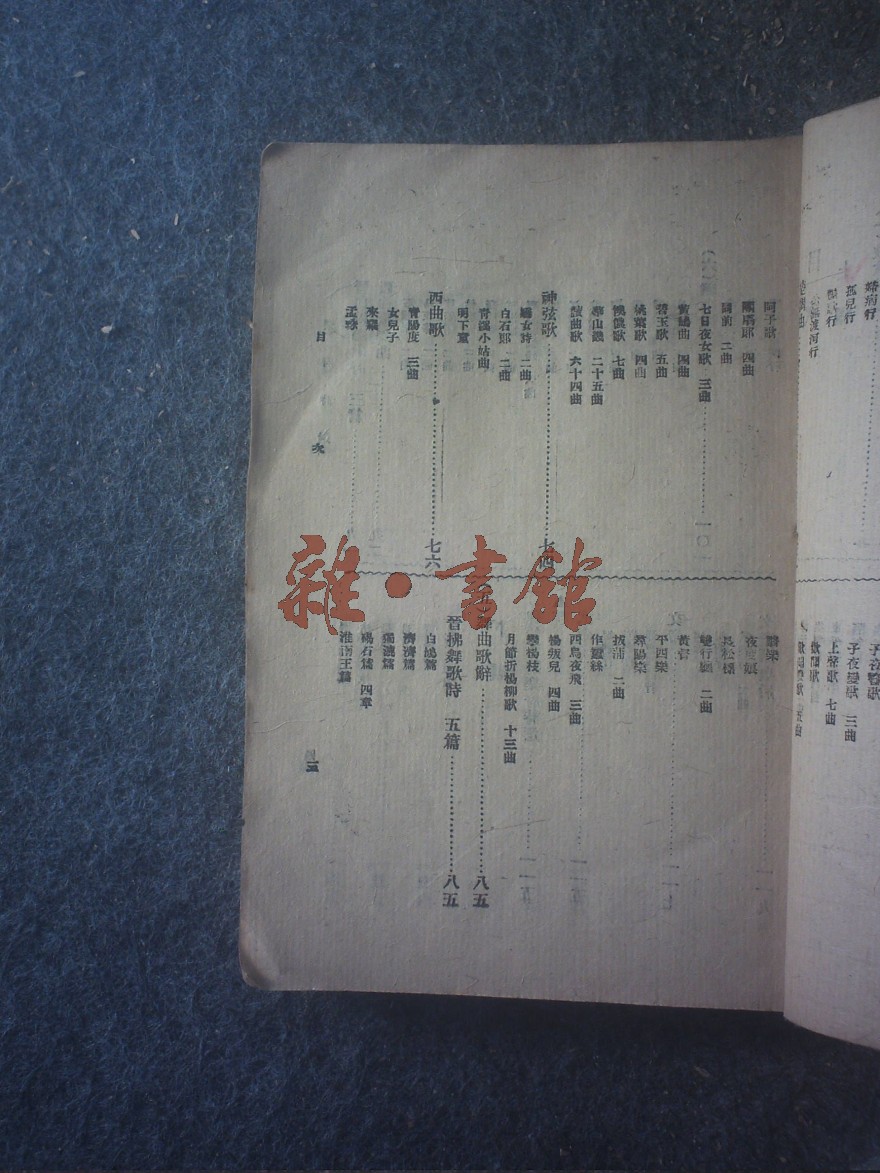 婦病行
孤兒行
渡河行
子夜變歌 三曲
上聲歌 七曲
歡聞歌
阿子歌
團扇郎 四曲
前 二曲
七日夜女歌 三曲
黃鵠曲 四曲
碧玉歌 五曲
桃葉歌 四曲
懊儂歌 七曲
華山畿 二十五曲
讀曲歌 六十四曲
神弦歌
嬌女詩 二曲
白石郎 二曲
青溪小姑曲
明下童
西曲歌 七六
青陽度 三曲
女兒子
來羅
孟珠
翳樂
夜度娘
長松標
雙行纏 二曲
黃督
平西樂
尋陽樂
拔蒲 二曲
作蠶絲
西烏夜飛 三曲
楊叛兒 四曲
攀楊枝
月節折楊柳歌 十三曲
舞曲歌辭 八五
晉拂舞歌詩 五篇 八五
白鳩篇
濟濟篇
獨漉篇
碣石篇 四章
淮南王篇
目次
三
雜·書館